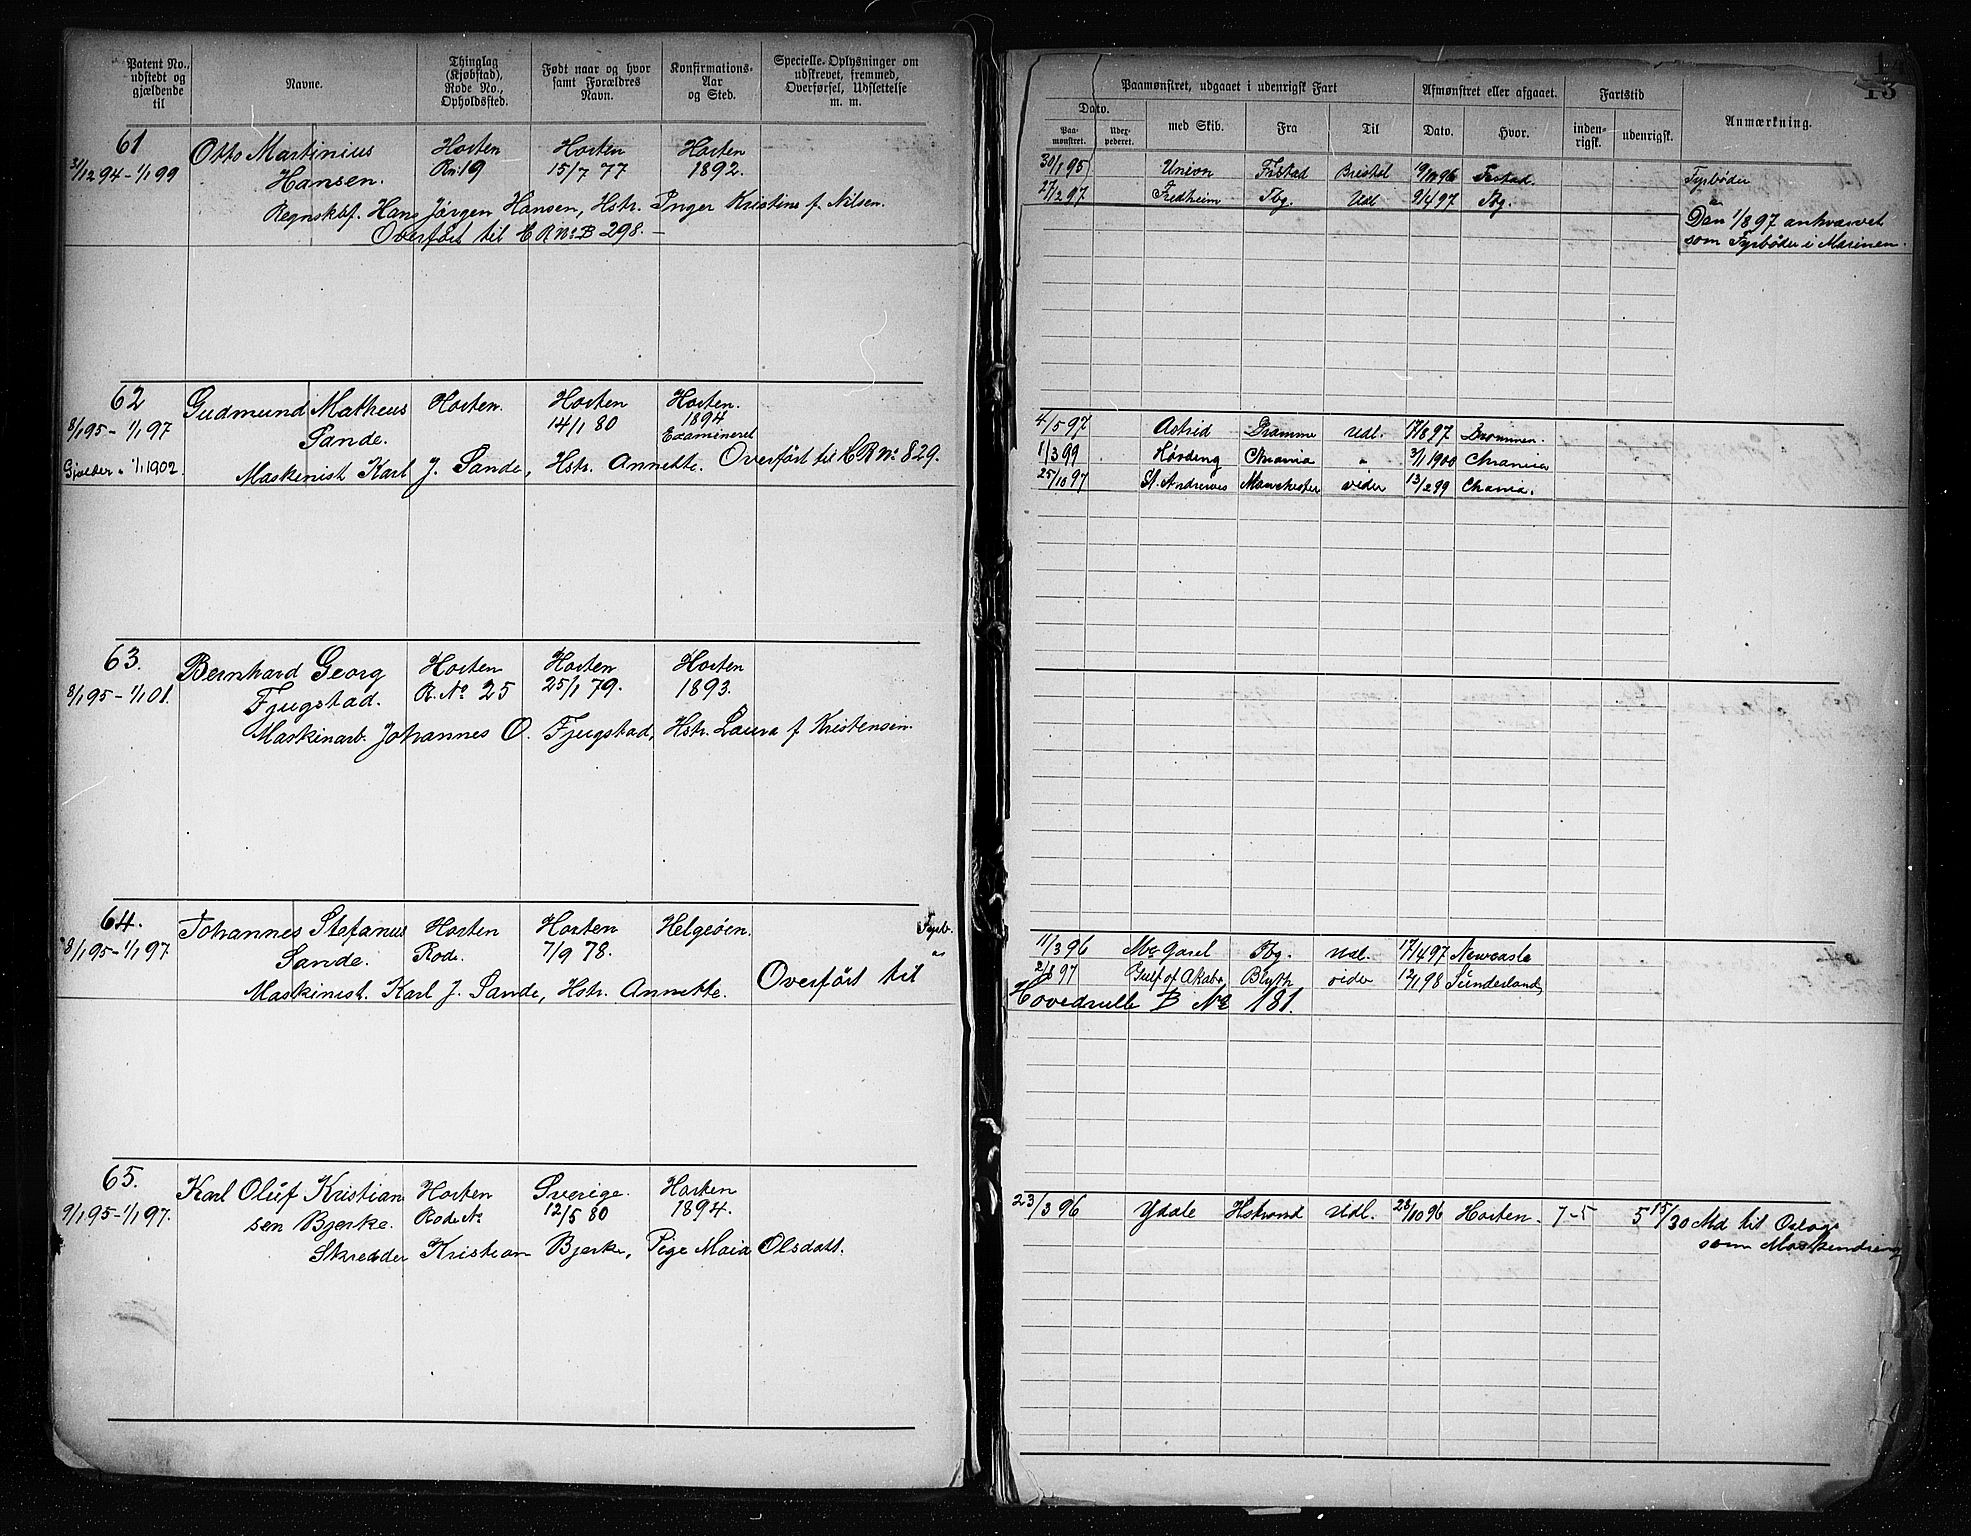 Patent No., udstedt og gjældende til
Navne.
Thinglag (Kjøbstad), Rode No., Opholdssted.
Født naar og hvor samt Forældres Navn.
Konfirmations-Aar og Sted.
Specielle Oplysninger om udskrevet, fremmed, Overførsel, Udslettelse m. m.
61 Otto Martinius Horten Horten Horten
31/12 94 - 1/1 99 Hansen. R.n: 19 15/7 77 1892.
Regnskbf. Hans Jørgen Hansen, Hstr. Inger Kristine f. Nilsen.
Overført til H R No B 298. -
62 Gudmund Matheus Horten. Horten Horten.
8/1 95 - 1/1 97 Sande. 14/1 80 1894
Examineret
Gjælder " 1/1 1902. Maskinist Karl J. Sande, Hstr. Annette. Overført til H R No 829.
63. Bernhard Georg Horten Horten Horten
8/1 95 - 1/1 01. Fjugstad. R. No 25 25/1 79. 1893.
Maskinarb. Johannes O. Fjugstad, Hstr. Laura f Kristensen.
64. Johannes Stefanus Horten Horten Helgøen.
8/1 95 - 1/1 97. Sande. Rode. 7/9 78.
Maskinist. Karl J. Sande, Hstr. Annette. Overført til
65. Karl Oluf Kristian Horten Sverige. Horten
9/1 95 - 1/1 97. sen Bjerke. Rode No 12/5 80 1894.
Skredder Kristian Bjerke, Pige Maia Olsdatt.
13
Paamønstret, udgaaet i udenrigsk Fart
Afmønstret eller afgaaet.
Fartstid
Anmærkning.
Dato.
Paa-mønstret.
Udex-pederet.
med Skib.
Fra
Til
Dato.
Hvor.
inden-rigsk.
udenrigsk.
30/1 95 Union Frstad Bristol 19/10 96 Frstad. Fyrbøder
27/2 97 Fredheim Tbg. Udl 9/4 97 Tbg.
Den 1/8 97 anhvervet
som Fyrbøder i Marinen.
4/5 97 Astrid Dramme Udl. 17/8 97 Drammen.
1/3 99 Høvding Chrania " 3/1 1900 Chrania
25/10 97 St. Andrews Manchester vider 13/2 99 Chrania.
Fyrb.
11/3 96 Mc Garel Tbg. Udl. 17/4 97 Newcastle
2/8 97 Gulf of Akaba, Blyth vider 12/1 98 Sunderland
Hovedrulle B No 181.
23/3 96 Ydale Hstrand Udl. 28/10 96 Horten. 7-5 5 15/30 Md til Oslogs
som Maskindreng